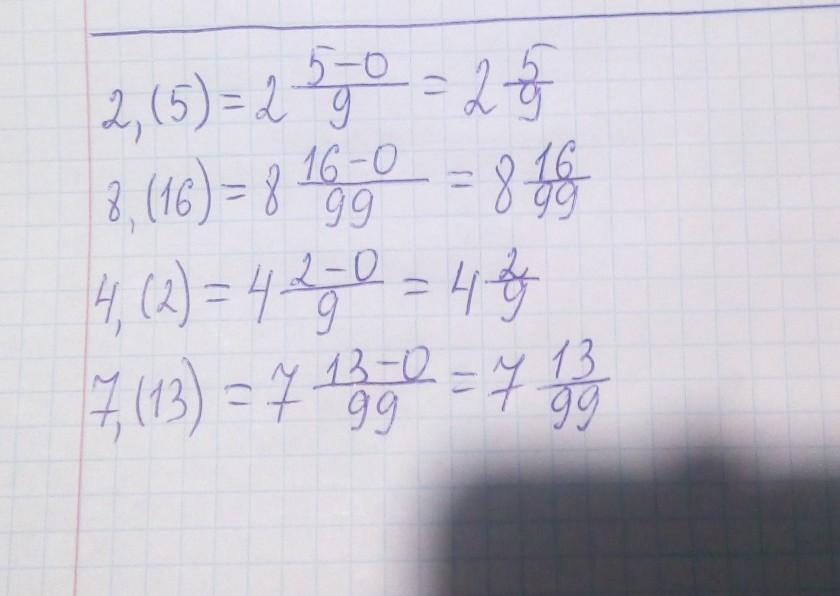 2,(5) = 2 5-0/9 = 2 5/9
8,(16) = 8 16-0/99 = 8 16/99
4,(2) = 4 2-0/9 = 4 2/9
7,(13) = 7 13-0/99 = 7 13/99